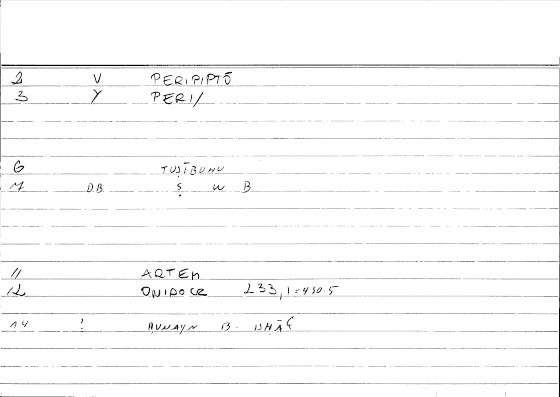 2 V PERIPIPTŌ
3 Y PERI/
6 TUṢĪBUHU
7 DB Ṣ W B
11 ARTEM
12 ONIROCR 233,1=430.5
14 ! ḤUNAYN B. ISḤĀḲ